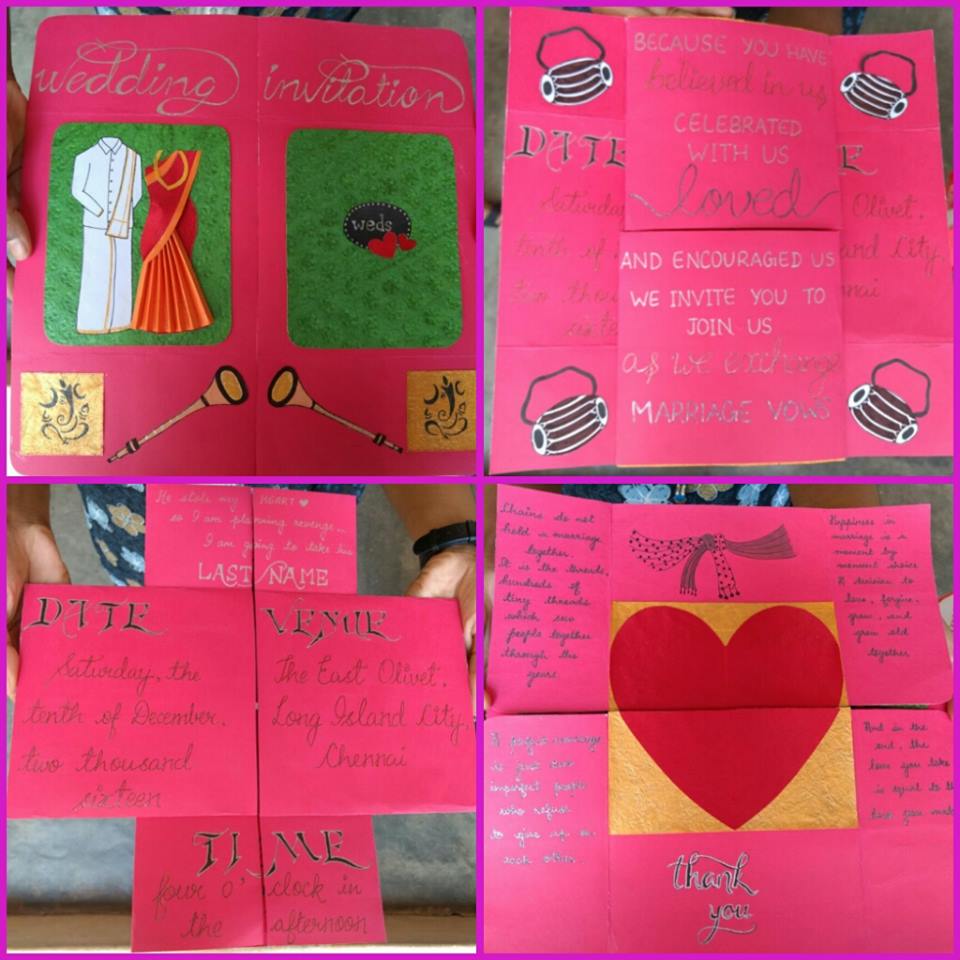 wedding invitation
weds
BECAUSE YOU HAVE
believed in us
CELEBRATED
WITH US
loved
AND ENCOURAGED US
WE INVITE YOU TO
JOIN US
as we exchange
MARRIAGE VOWS
DATE
Saturday
tenth of
two thou
sixte
E
Olivet,
and City,
nnai
He stole my HEART ♥
so I am planning revenge...
I am going to take his
LAST NAME
DATE
Saturday, the
tenth of December,
two thousand
sixteen
VENUE
The East Olivet,
Long Island City,
Chennai
TIME
four o' clock in
the afternoon
Chains do not
hold a marriage
together.
It is the threads,
hundreds of
tiny threads
which sew
people together
through the
years
Happiness in
marriage is a
moment by
moment choice
A decision to
love, forgive,
grow, and
grow old
together
A perfect marriage
is just two
imperfect people
who refuse
to give up on
each other.
And in the
end, the
love you take
is equal to th
love you mak
thank
you